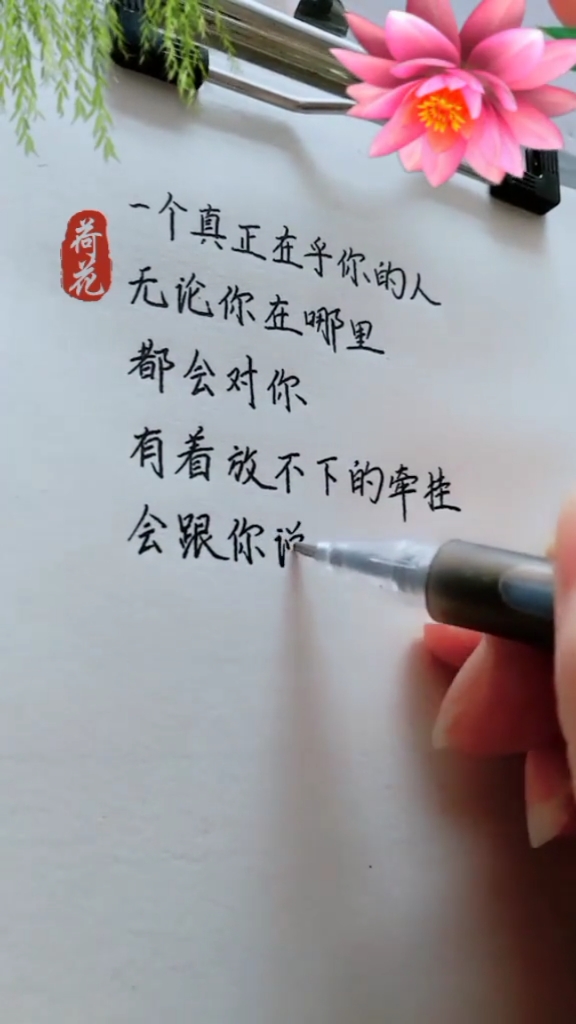 荷花
一个真正在乎你的人
无论你在哪里
都会对你
有着放不下的牵挂
会跟你说